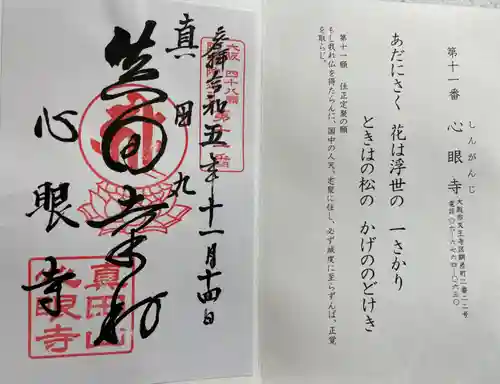 第十一番 心眼寺
しんがんじ
大阪市天王寺区餌差町二番二二号
あだにさく 花は浮世の 一さかり
ときはの松の かげののどけき
第十一願 住正定聚の願
もし我れ仏を得たらんに、国中の人天、定聚に住し、必ず滅度に至らずんば、正覚
を取らじ。
大阪四十八願
奉拝 令和五年十一月十四日
真田丸
心眼寺
真田山
心眼寺